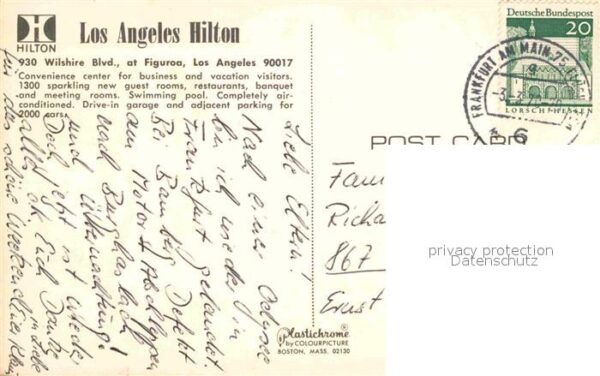 HILTON
Los Angeles Hilton
930 Wilshire Blvd., at Figuroa, Los Angeles 90017
Convenience center for business and vacation visitors.
1300 sparkling new guest rooms, restaurants, banquet
and meeting rooms. Swimming pool. Completely air-
conditioned. Drive-in garage and adjacent parking for
2000 cars.
Liebe Eltern!
Nach einer Odysse
bin ich wieder in
Frankfurt gelandet.
Bei Bamberg Defekt
am Motor + Abschleppen
nach
und Übernachtung!
Doch jetzt ist wieder
alles ok. Euch Danke
für das schöne Wochenende
in Liebe
Deutsche Bundespost
20
LORSCH/HESSEN
FRANKFURT AM MAIN
6
POST CARD
Fam
Richa
867
Ernst
privacy protection
Datenschutz
plastichrome®
by COLOURPICTURE
BOSTON, MASS. 02130